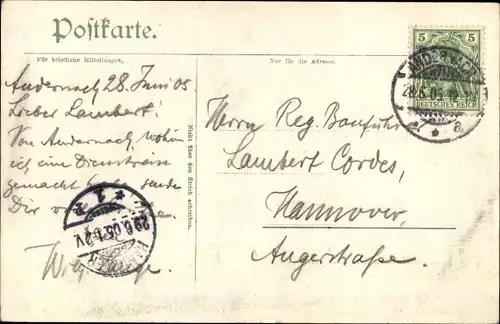 Postkarte.
Für briefliche Mitteilungen.
Nur für die Adresse.
Andernach 28 Juni 05
Lieber Lambert!
Von Andernach, wohin
ich eine Dienstreise
gemacht habe sende
Dir
Nicht über den Strich schreiben.
5 5
DEUTSCHES REICH
ANDERNACH
28.6.05
* a
* 1
29.6.05
Herrn Reg. Bauführer
Lambert Cordes,
Hannover,
Angerstraße.